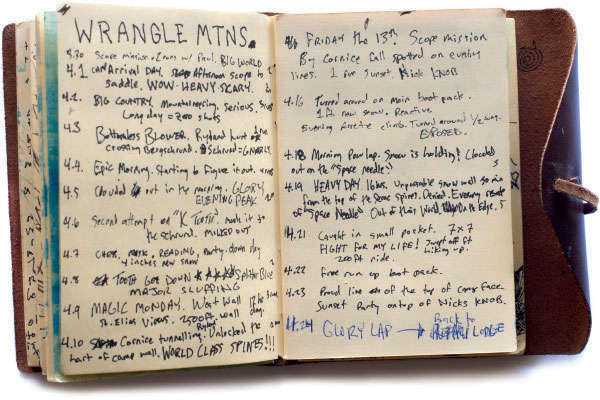 WRANGLE MTNS.
3.30 Scope mission w/ Paul. BIG WORLD
4.1 Arrival DAY. Afternoon scope to
saddle. WOW. HEAVY. SCARY.
4.2. BIG COUNTRY. Mountaineering. Serious.
Long day = zero shots
4.3 Bottomless BLOWER. Ryland hurt
crossing Bergschrund. Schrund = GNARLY
4.4. Epic Morning. Starting to figure it out.
4.5 Clouded out in the morning. GLORY
EVENING PEAK
4.6 Second attempt on "K TOOTH" made it to
the schrund. MILKED OUT
4.7 CHESS, MUSIC, READING, Party down day
4 inches new snow
4.8 TOOTH GOT DOWN Splitter Blue
MAJOR SLUFFING
4.9 MAGIC MONDAY. West Wall
St. Elias Views. 2500ft wall day.
4.10 Cornice tunnelling. Unlocked the
hart of camp wall. WORLD CLASS SPINES!!!
FRIDAY the 13th. Scope mission
By Cornice fall spotted on evening
lines. 1 run Sunset. Nick KNOB
4.16 Turned around on main boot pack.
1 ft new snow. Reactive
Evening Arrette climb. Turned around 1/2 way.
EXPOSED.
4.18 Morning Pow lap. Snow is holding! Clouded
out on the "Space needle"
4.19 HEAVY DAY. 16 hrs. Unpassable snow wall
from the top of the Same Spines. Denied. Evening
of "Space Needle" Out of this World. Edge.
4.21 Caught in small pocket. 7x7
FIGHT FOR MY LIFE! Swept off ft
hiking up.
200ft ride.
4.22 Free run up boot pack.
4.23 Proud line off the top of camp face
Sunset Party on top of Nicks KNOB.
4.24 GLORY LAP → Back to
LODGE